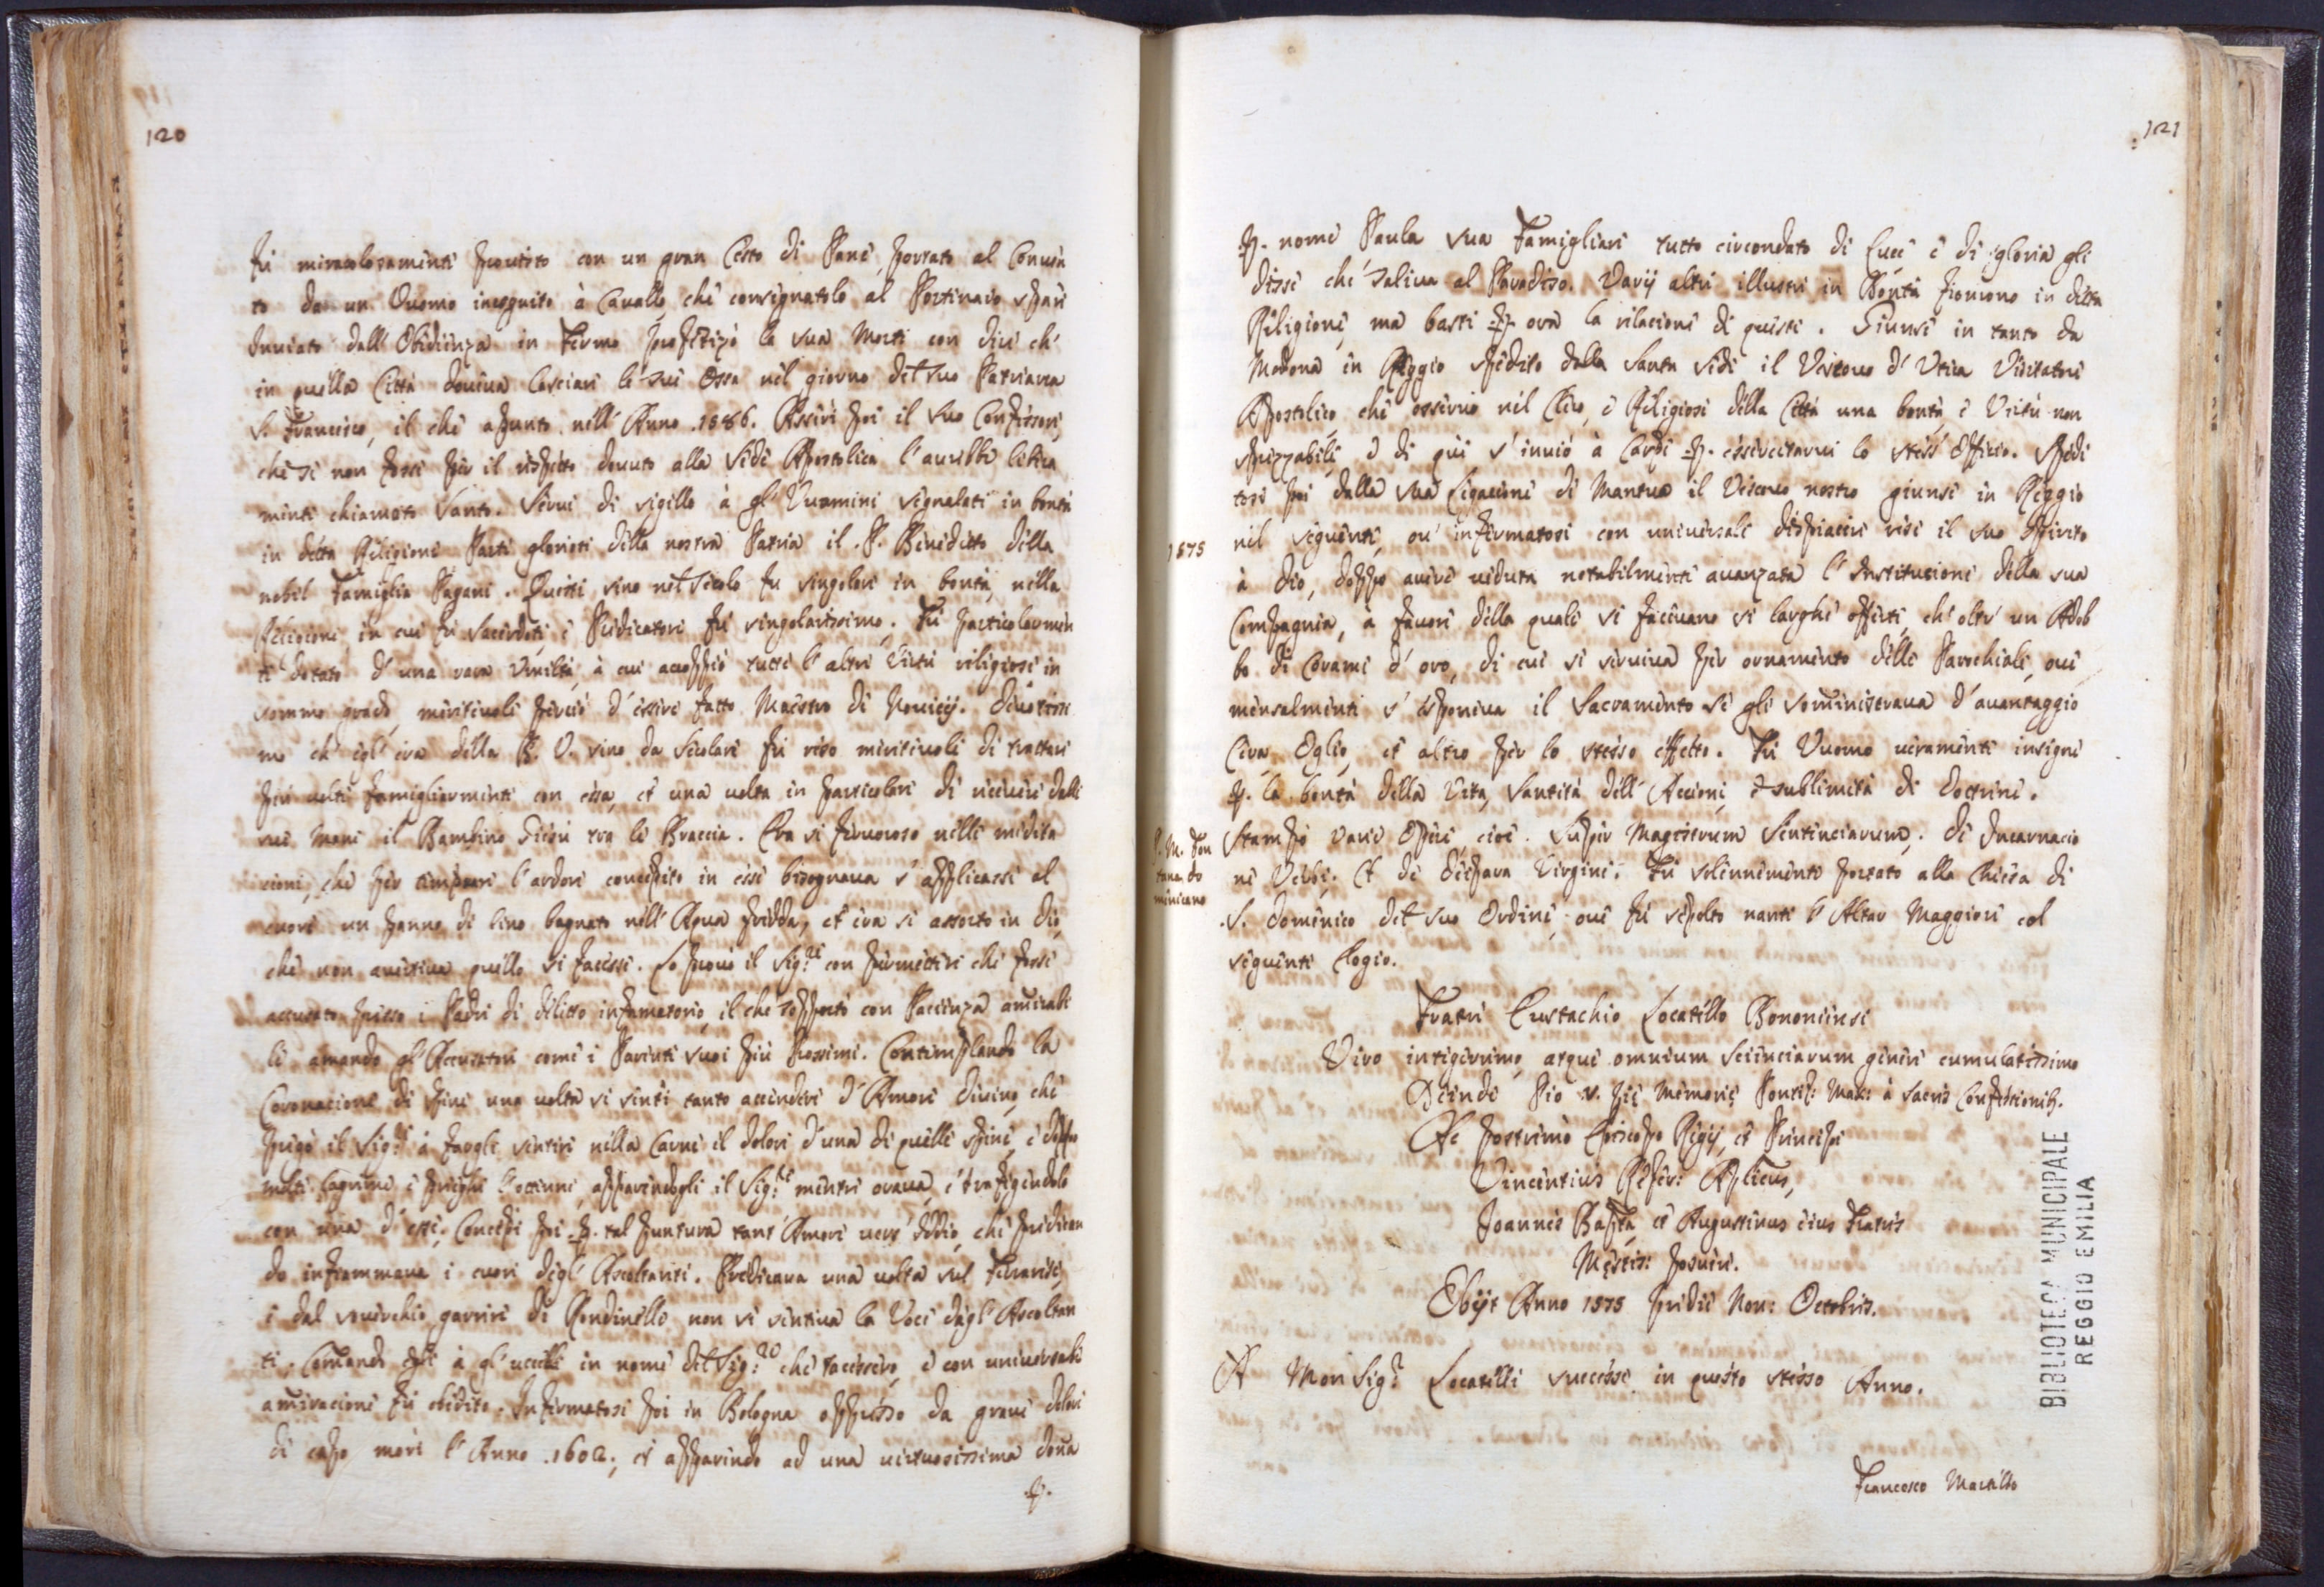 120
fù miracolosamente proueduto con un gran Cesto di Pane, portato al Conuen
to da un Vuomo incognito à Cauallo, che consignatolo al Portinaio sparì
Inuiato dall' Obedienza in Fermo profetizò la sua Morte con dire ch'
in quella Città doueua lasciare le sue Ossa nel giorno del suo Patriarca
S. Francesco, il che apunto nell' Anno .1586. Asserì poi il suo Confessore,
che se non fosse per il rispetto douuto alla Sede Apostolica l'aurebbe libera
mente chiamato Santo. Serui di sigillo à gl' Vuomini segnalati in bontà
in detta Religione Parti gloriosi della nostra Patria il .P. Benedetto della
nobil Famiglia Pagani. Questi sino nel secolo fu singolare in bontà, nella
Religione, in cui fù Sacerdote, e Predicatore fù singolarissimo. Fù particolarmen
te dotato d' una rara Vmiltà, à cui accoppiò tutte l' altre Virtù religiose in
sommo grado, meriteuole perciò d' essere fatto Maestro di Nouicij. Diuotissi
mo ch' egl' era della B. V. sino da Secolare fù reso meriteuole di trattare
più uolte famigliarmente con essa, et una uolta in particolare di riceuere dalle
sue Mani il Bambino Giesù tra le Braccia. Era si feruoroso nelle medita
cioni, che per temprare l' ardore concepito in esse bisognaua s' applicasse al
cuore un panno di lino bagnato nell' Aqua fredda, et era si assorto in Dio,
che non auertiua quello si facesse. Lo prouò il Sig:re con permettere che fosse
accusato presso i Padri di delitto infamatorio, il che sopportò con Pacienza amirabi
le amando gl' Accusatori come i Parenti suoi più Prossimi. Contemplando la
Coronacione di Spine una uolta si sentì tanto accendere d' Amore Diuino, che
pregò il Sig:re à fargli sentire nella Carne il dolore d' una di quelle spine, e doppo
molte lagrime e prieghi l' ottenne, apparendogli il Sig:re mentre oraua, e trafigendolo
con una d' esse; Concepì poi p. tal puntura tant' Amore uers' Iddio, che predican
do infiammaua i cuori degl' Ascoltanti. Predicaua una uolta sul Ferarese,
e dal souerchio garrire di Rondinelle non si sentiua la Voce dagl' Ascoltan
ti. Comandò egli à gl' uccelli in nome del Sig:re che tacessero, e con uniuersale
amiracione fù obedito. Infermatosi poi in Bologna oppresso da graui dolori
di capo morì l' Anno .1602., et apparendo ad una uirtuosissima dona
p.
121
p. nome Paula sua Famigliare tutto circondato di Luce e di gloria gli
disse che saliua al Paradiso. Varij altri illustri in Bontà fiorirono in detta
Religione, ma basti p. ora la relacione di questi. Giunse in tanto da
Modona in Reggio spedito dalla Santa Sede il Vescouo d' Vtica Visitatore
Apostolico, che osseruò nel Clero, e Religiosi della Città una bontà e Virtù non
sprezzabile, e di quì s' inuiò à Carpi p. essercitarui lo stess' Officio. Spedi
tosi poi dalla sua Legacione di Mantua il Vescouo nostro giunse in Reggio
1575
nel seguente, ou' infermatosi con uniuersale dispiacere rese il suo Spirito
à Dio, doppo auere ueduta notabilmente auanzata l' Institucione della sua
Compagnia, à fauore della quale si faceuano si larghe offerte, ch' oltr' un Adob
bo di Corami d' oro, di cui si seruiua per ornamento delle Parochiali, oue
mensalmente s' esponeua il Sacramento se gli somministraua d' auantaggio
Cera, Oglio, et altro per lo stesso effetto. Fù Vuomo ueramente insigne
p. la bontà della Vita, Santità dell' Accioni, e sublimità di Dottrine.
P. M. Fon
tana, Do
minicano
Stampò uarie Opere, cioè. Super Magistrum Sentenciarum. De Incarnacio
ne Verbi. Et de Deipara Virgine. Fù solennemente portato alla Chiesa di
.S. Domenico del suo Ordine, oue fù sepolto nanti l' Altar Maggiore col
seguente Elogio.
Fratri Eustachio Locatello Bononiensi
Viro integerrimo, atque omnium Scienciarum genere cumulatissimo
Deinde Pio .V. pię Memorię Pontif: Max: à Sacris Confessionib.
Ac postremò Episcopo Regij, et Principi
Vincentius Refer: Aplicus,
Joannes Bapta, et Augustinus eius Fratres
Męstis: posuere.
Obijt Anno 1575 pridie Non: Octobris.
A Mon Sig:r Locatelli successe in questo stesso Anno.
Francesco Martello
BIBLIOTECA MUNICIPALE
REGGIO EMILIA